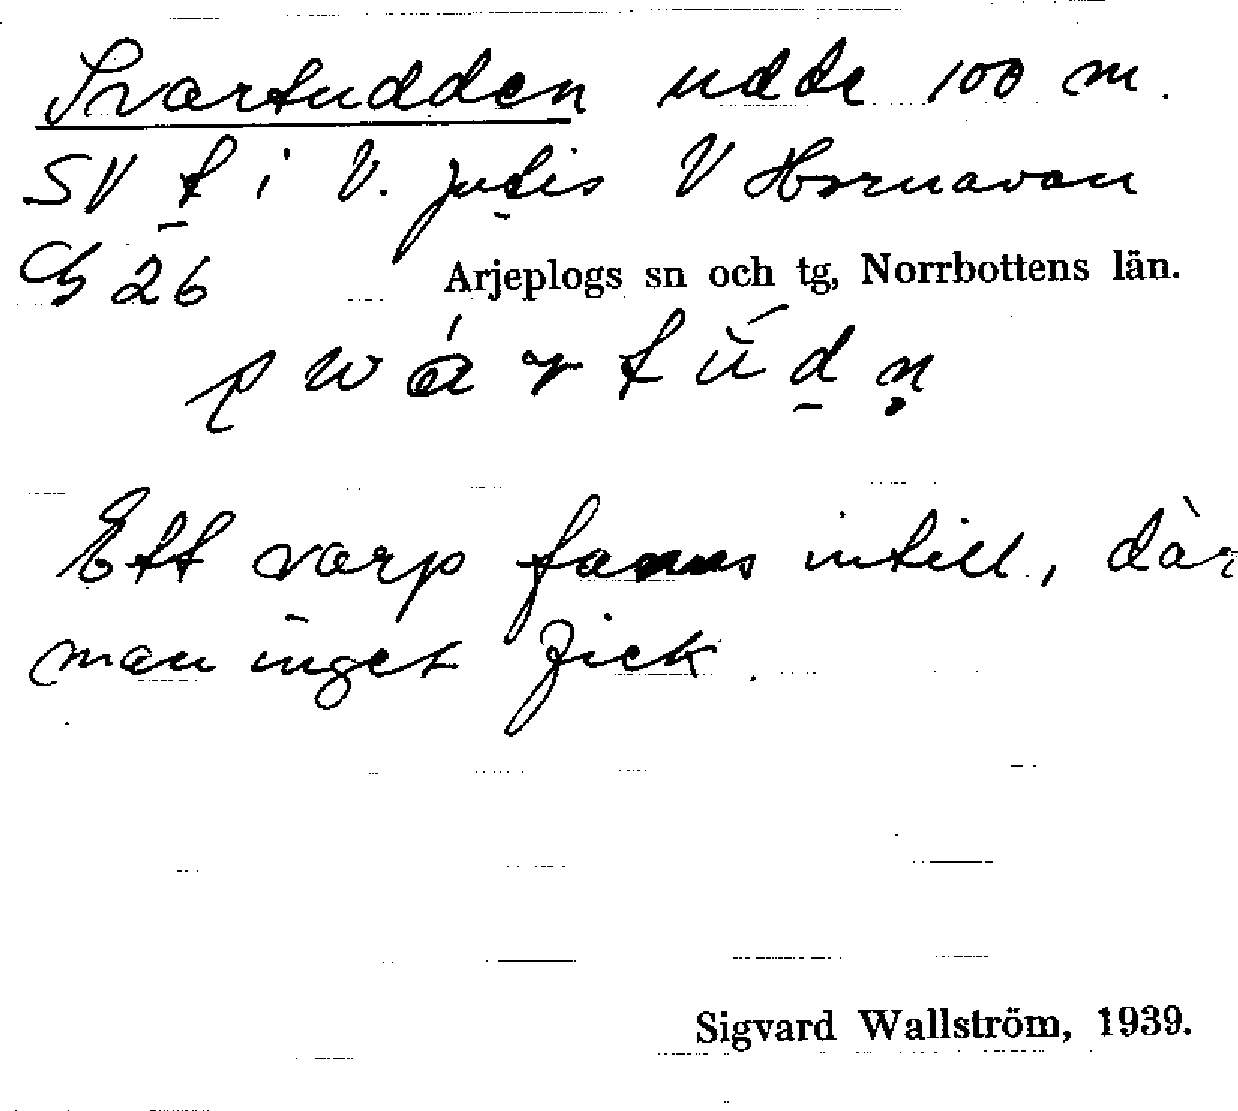 Svartudden udde 100 m.
SV t i V. Jutis V Hornavan
G 26 Arjeplogs sn och tg, Norrbottens län.
Ett varp fanns intill, där
man inget fick.
Sigvard Wallström, 1939.